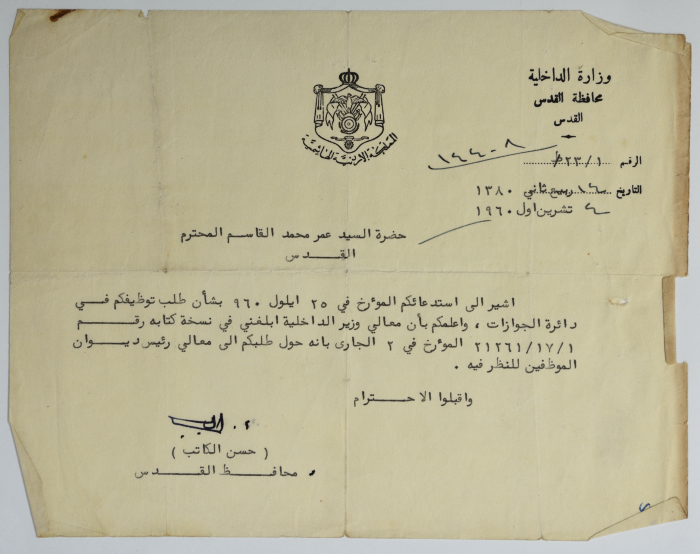 وزارة الداخلية
محافظة القدس
القدس
المملكة الاردنية الهاشمية
الرقم ٢٣/١/ ١٤٤٠٨
التاريخ ١٤ ربيع ثاني ١٣٨٠
٤ تشرين اول ١٩٦٠
حضرة السيد عمر محمد القاسم المحترم
القدس
اشير الى استدعائكم المؤرخ في ٢٥ ايلول ٩٦٠ بشأن طلب توظيفكم في
دائرة الجوازات ، واعلمكم بأن معالي وزير الداخلية ابلغني في نسخة كتابه رقم
٢١٢٦١/١٧/١ المؤرخ في ٢ الجارى بانه حول طلبكم الى معالي رئيس ديوان
الموظفين للنظر فيه .
واقبلوا الاحترام
( حسن الكاتب )
محافظ القدس